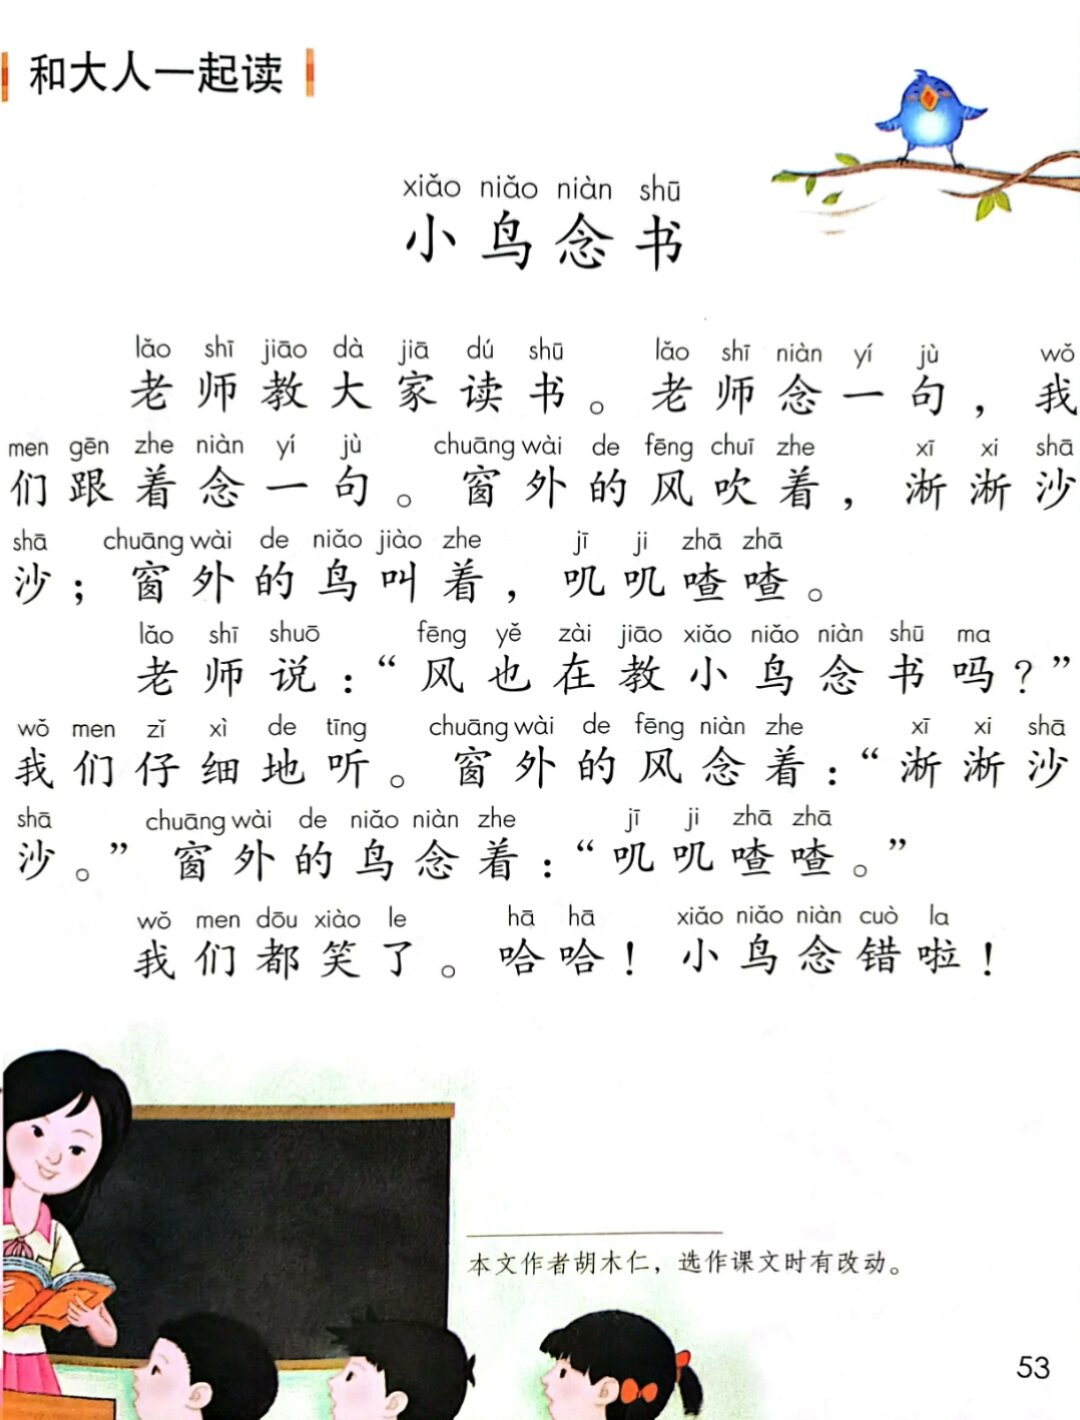 和大人一起读
xiǎo niǎo niàn shū
小鸟念书
lǎo shī jiāo dà jiā dú shū lǎo shī niàn yí jù wǒ
老师教大家读书。老师念一句，我
men gēn zhe niàn yí jù chuāng wài de fēng chuī zhe xī xi shā
们跟着念一句。窗外的风吹着，淅淅沙
shā chuāng wài de niǎo jiào zhe jī ji zhā zhā
沙；窗外的鸟叫着，叽叽喳喳。
lǎo shī shuō fēng yě zài jiāo xiǎo niǎo niàn shū ma
老师说：“风也在教小鸟念书吗？”
wǒ men zǐ xì de tīng chuāng wài de fēng niàn zhe xī xi shā
我们仔细地听。窗外的风念着：“淅淅沙
shā chuāng wài de niǎo niàn zhe jī ji zhā zhā
沙。”窗外的鸟念着：“叽叽喳喳。”
wǒ men dōu xiào le hā hā xiǎo niǎo niàn cuò la
我们都笑了。哈哈！小鸟念错啦！
本文作者胡木仁，选作课文时有改动。
53